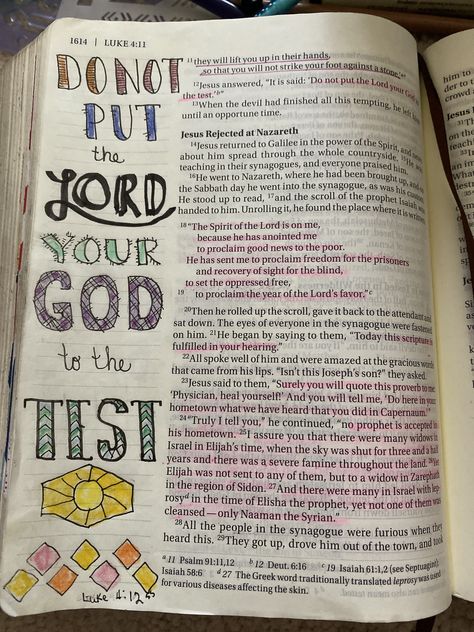 1614 | LUKE 4:11
DO NOT
PUT
the
LORD
YOUR
GOD
to the
TEST
Luke 4:12
11 they will lift you up in their hands,
so that you will not strike your foot against a stone.'"
12 Jesus answered, "It is said: 'Do not put the Lord your God to
the test.'b"
13 When the devil had finished all this tempting, he left him
until an opportune time.
Jesus Rejected at Nazareth
14 Jesus returned to Galilee in the power of the Spirit, and news
about him spread through the whole countryside. 15 He was
teaching in their synagogues, and everyone praised him.
16 He went to Nazareth, where he had been brought up, and on
the Sabbath day he went into the synagogue, as was his custom.
He stood up to read, 17 and the scroll of the prophet Isaiah was
handed to him. Unrolling it, he found the place where it is written:
18 "The Spirit of the Lord is on me,
because he has anointed me
to proclaim good news to the poor.
He has sent me to proclaim freedom for the prisoners
and recovery of sight for the blind,
to set the oppressed free,
19 to proclaim the year of the Lord's favor."c
20 Then he rolled up the scroll, gave it back to the attendant and
sat down. The eyes of everyone in the synagogue were fastened
on him. 21 He began by saying to them, "Today this scripture is
fulfilled in your hearing."
22 All spoke well of him and were amazed at the gracious words
that came from his lips. "Isn't this Joseph's son?" they asked.
23 Jesus said to them, "Surely you will quote this proverb to me:
'Physician, heal yourself!' And you will tell me, 'Do here in your
hometown what we have heard that you did in Capernaum.'"
24 "Truly I tell you," he continued, "no prophet is accepted in
his hometown. 25 I assure you that there were many widows in
Israel in Elijah's time, when the sky was shut for three and a half
years and there was a severe famine throughout the land. 26 Yet
Elijah was not sent to any of them, but to a widow in Zarephath
in the region of Sidon. 27 And there were many in Israel with lep-
rosyd in the time of Elisha the prophet, yet not one of them was
cleansed—only Naaman the Syrian."
28 All the people in the synagogue were furious when they
heard this. 29 They got up, drove him out of the town, and took
a 11 Psalm 91:11,12 b 12 Deut. 6:16 c 19 Isaiah 61:1,2 (see Septuagint);
Isaiah 58:6 d 27 The Greek word traditionally translated leprosy was used
for various diseases affecting the skin.